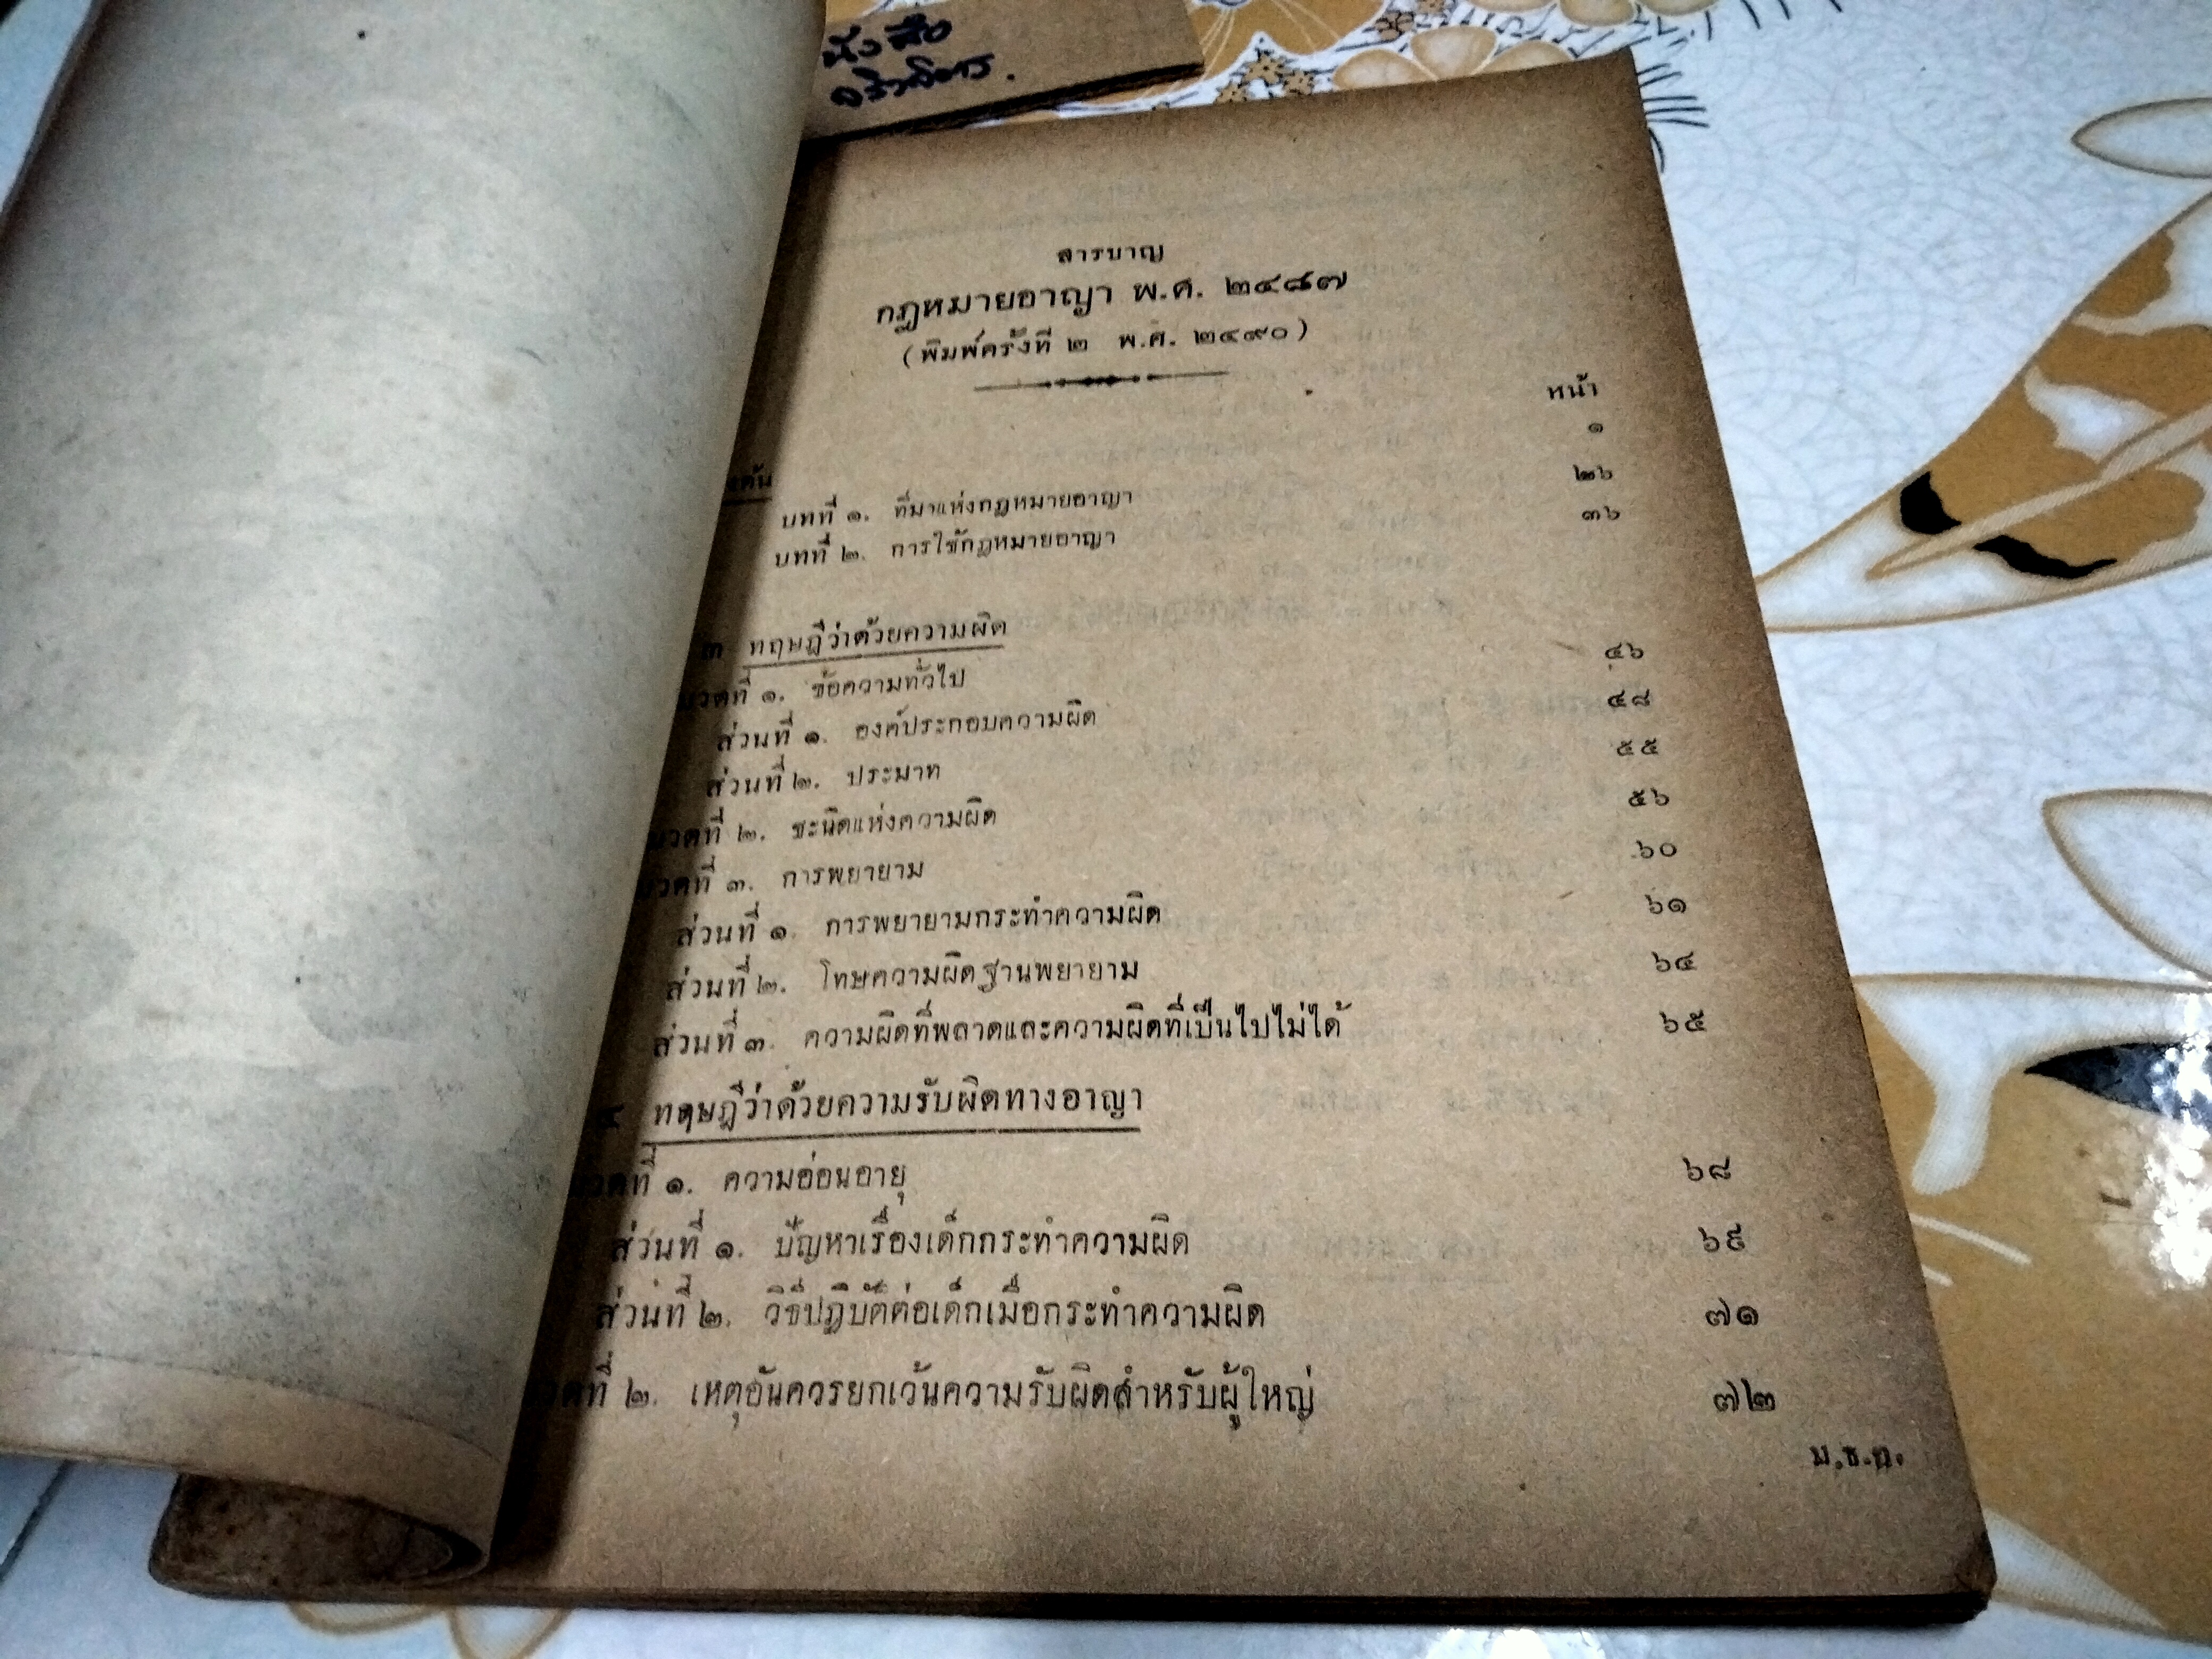 สารบาญ
กฎหมายอาญา พ.ศ. ๒๔๘๗
(พิมพ์ครั้งที่ ๒ พ.ศ. ๒๔๙๐)
หน้า
๑
บทที่ ๑. ที่มาแห่งกฎหมายอาญา ๒๖
บทที่ ๒. การใช้กฎหมายอาญา ๓๖
๓ ทฤษฎีว่าด้วยความผิด
วดที่ ๑. ข้อความทั่วไป ๔๖
ส่วนที่ ๑. องค์ประกอบความผิด ๔๘
ส่วนที่ ๒. ประมาท ๕๕
วดที่ ๒. ชะนิดแห่งความผิด ๕๖
วดที่ ๓. การพยายาม ๖๐
ส่วนที่ ๑. การพยายามกระทำความผิด ๖๑
ส่วนที่ ๒. โทษความผิดฐานพยายาม ๖๔
ส่วนที่ ๓. ความผิดที่พลาดและความผิดที่เป็นไปไม่ได้ ๖๕
๔ ทฤษฎีว่าด้วยความรับผิดทางอาญา
วดที่ ๑. ความอ่อนอายุ ๖๘
ส่วนที่ ๑. ปัญหาเรื่องเด็กกระทำความผิด ๖๙
ส่วนที่ ๒. วิธีปฏิบัติต่อเด็กเมื่อกระทำความผิด ๗๑
วดที่ ๒. เหตุอันควรยกเว้นความรับผิดสำหรับผู้ใหญ่ ๗๒
ม.ธ.ก.